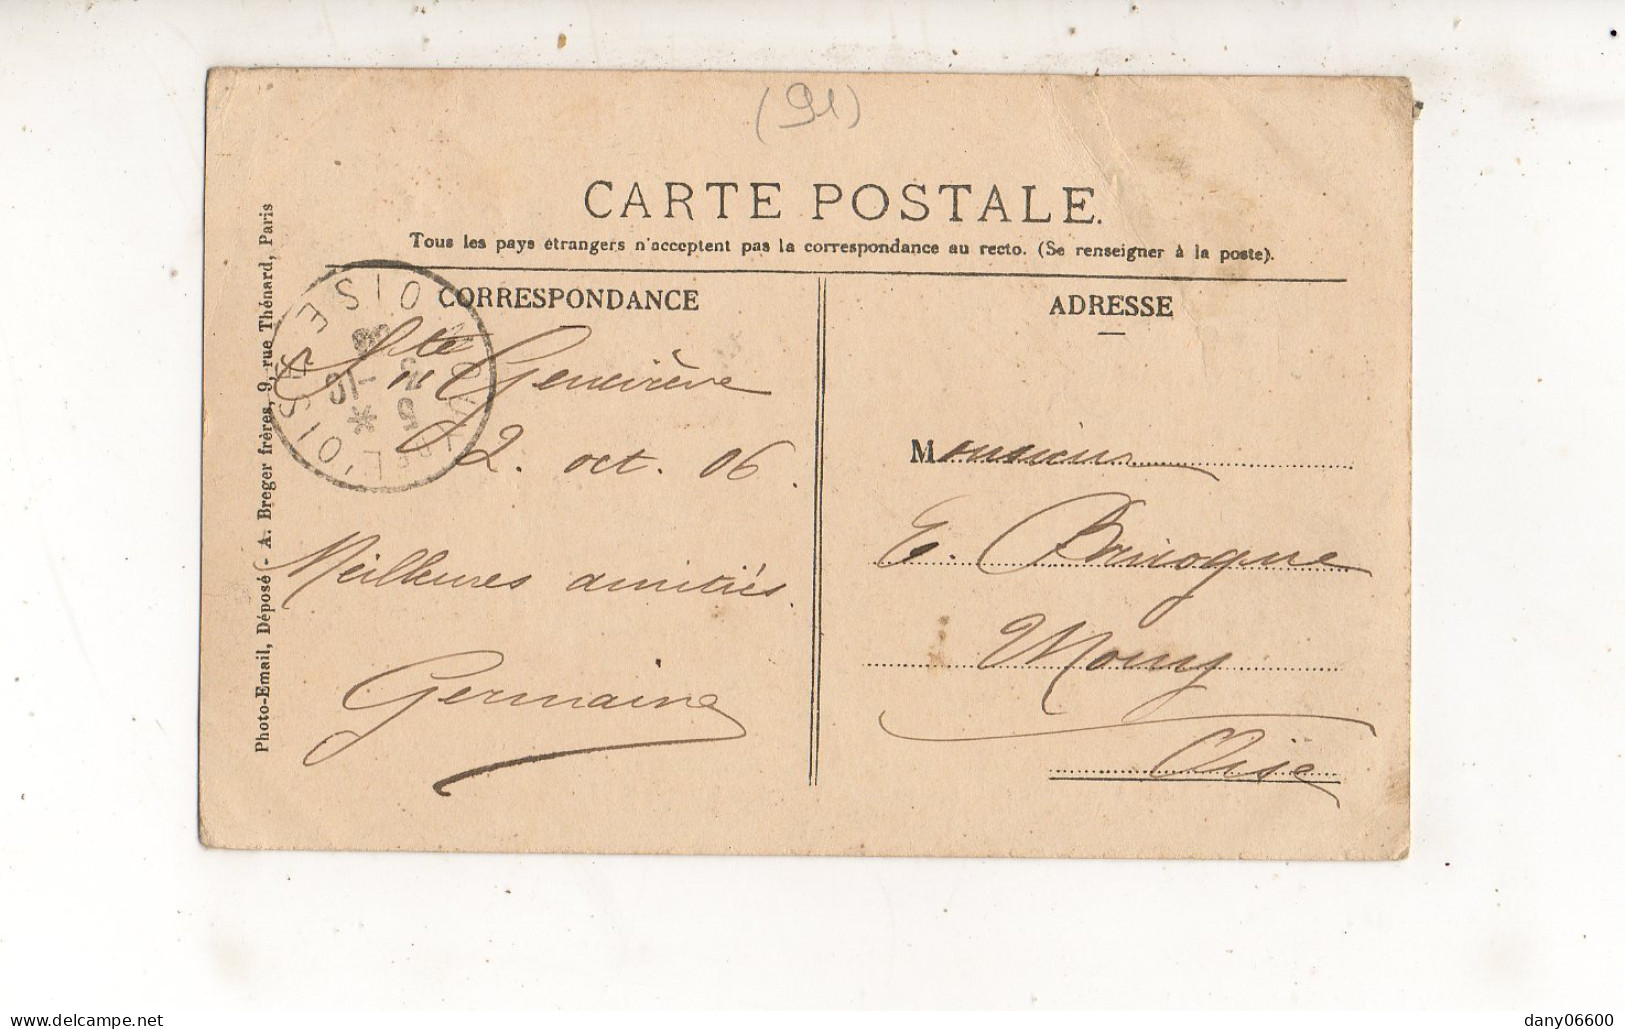 (91)
CARTE POSTALE.
Tous les pays étrangers n'acceptent pas la correspondance au recto. (Se renseigner à la poste).
CORRESPONDANCE
Ste Geneviève
2. oct. 06.
Meilleures amitiés.
Germaine
ADRESSE
Monsieur
E.
Mouy
Oise
Photo-Email, Déposé - A. Breger frères, 9, rue Thénard, Paris
OISE
L'OISE
5
delcampe.net
dany06600